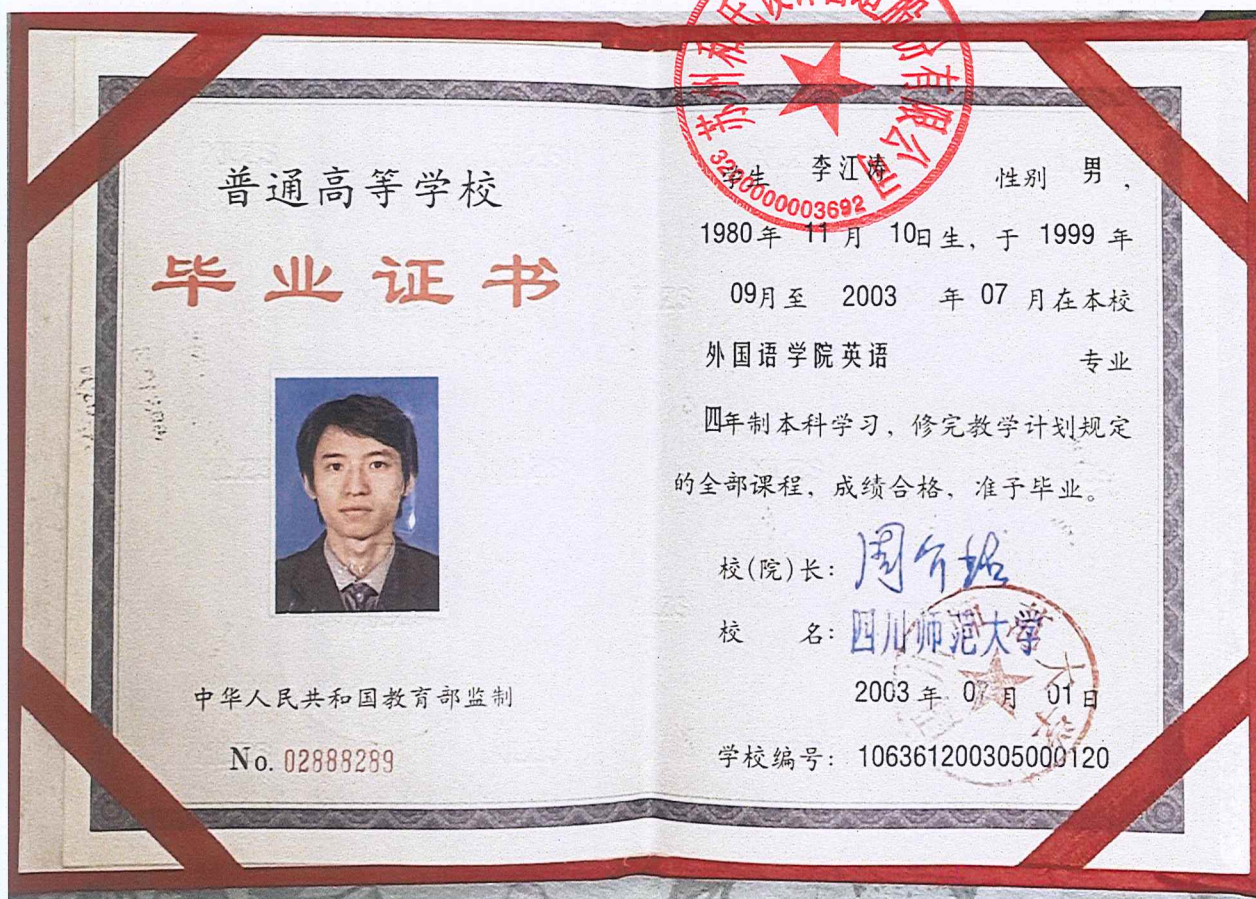 普通高等学校
毕业证书
中华人民共和国教育部监制
No. 02888289
学生 李江涛 性别 男，
1980年 11月 10日生，于 1999 年
09月至 2003 年 07 月在本校
外国语学院英语 专业
四年制本科学习，修完教学计划规定
的全部课程，成绩合格，准予毕业。
校(院)长：
校 名：四川师范大学
2003 年 07 月 01 日
学校编号：106361200305000120
苏州 股份有限公司